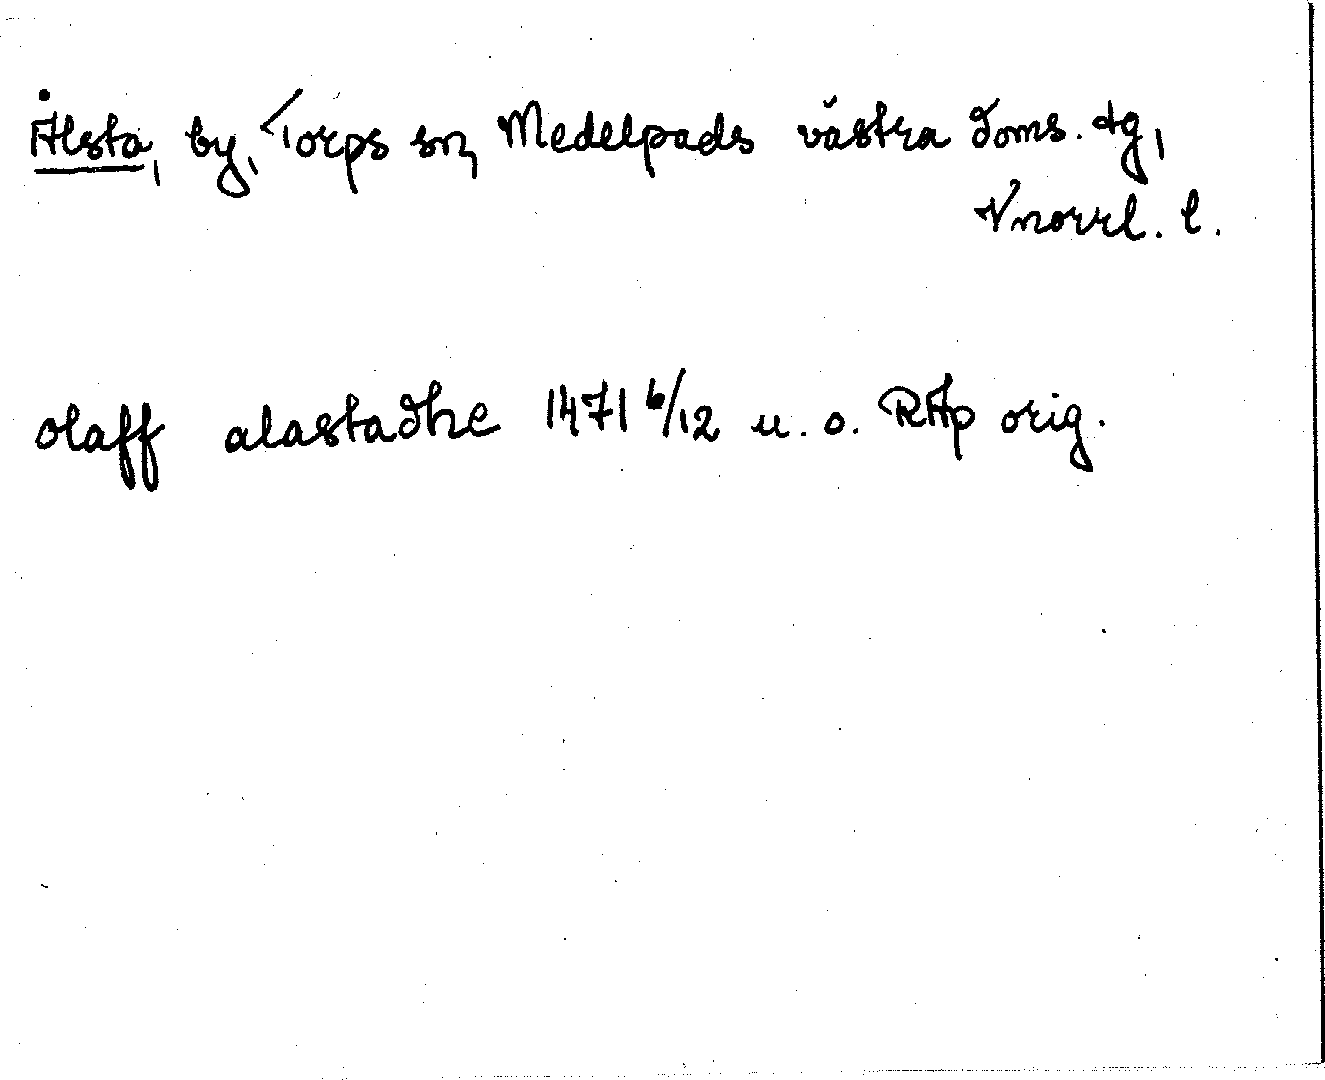 Ålsta, by, Torps sn, Medelpads västra doms. tg,
Vnorrl. l.
olaff alastadhe 1471 6/12 u. o. RAp orig.